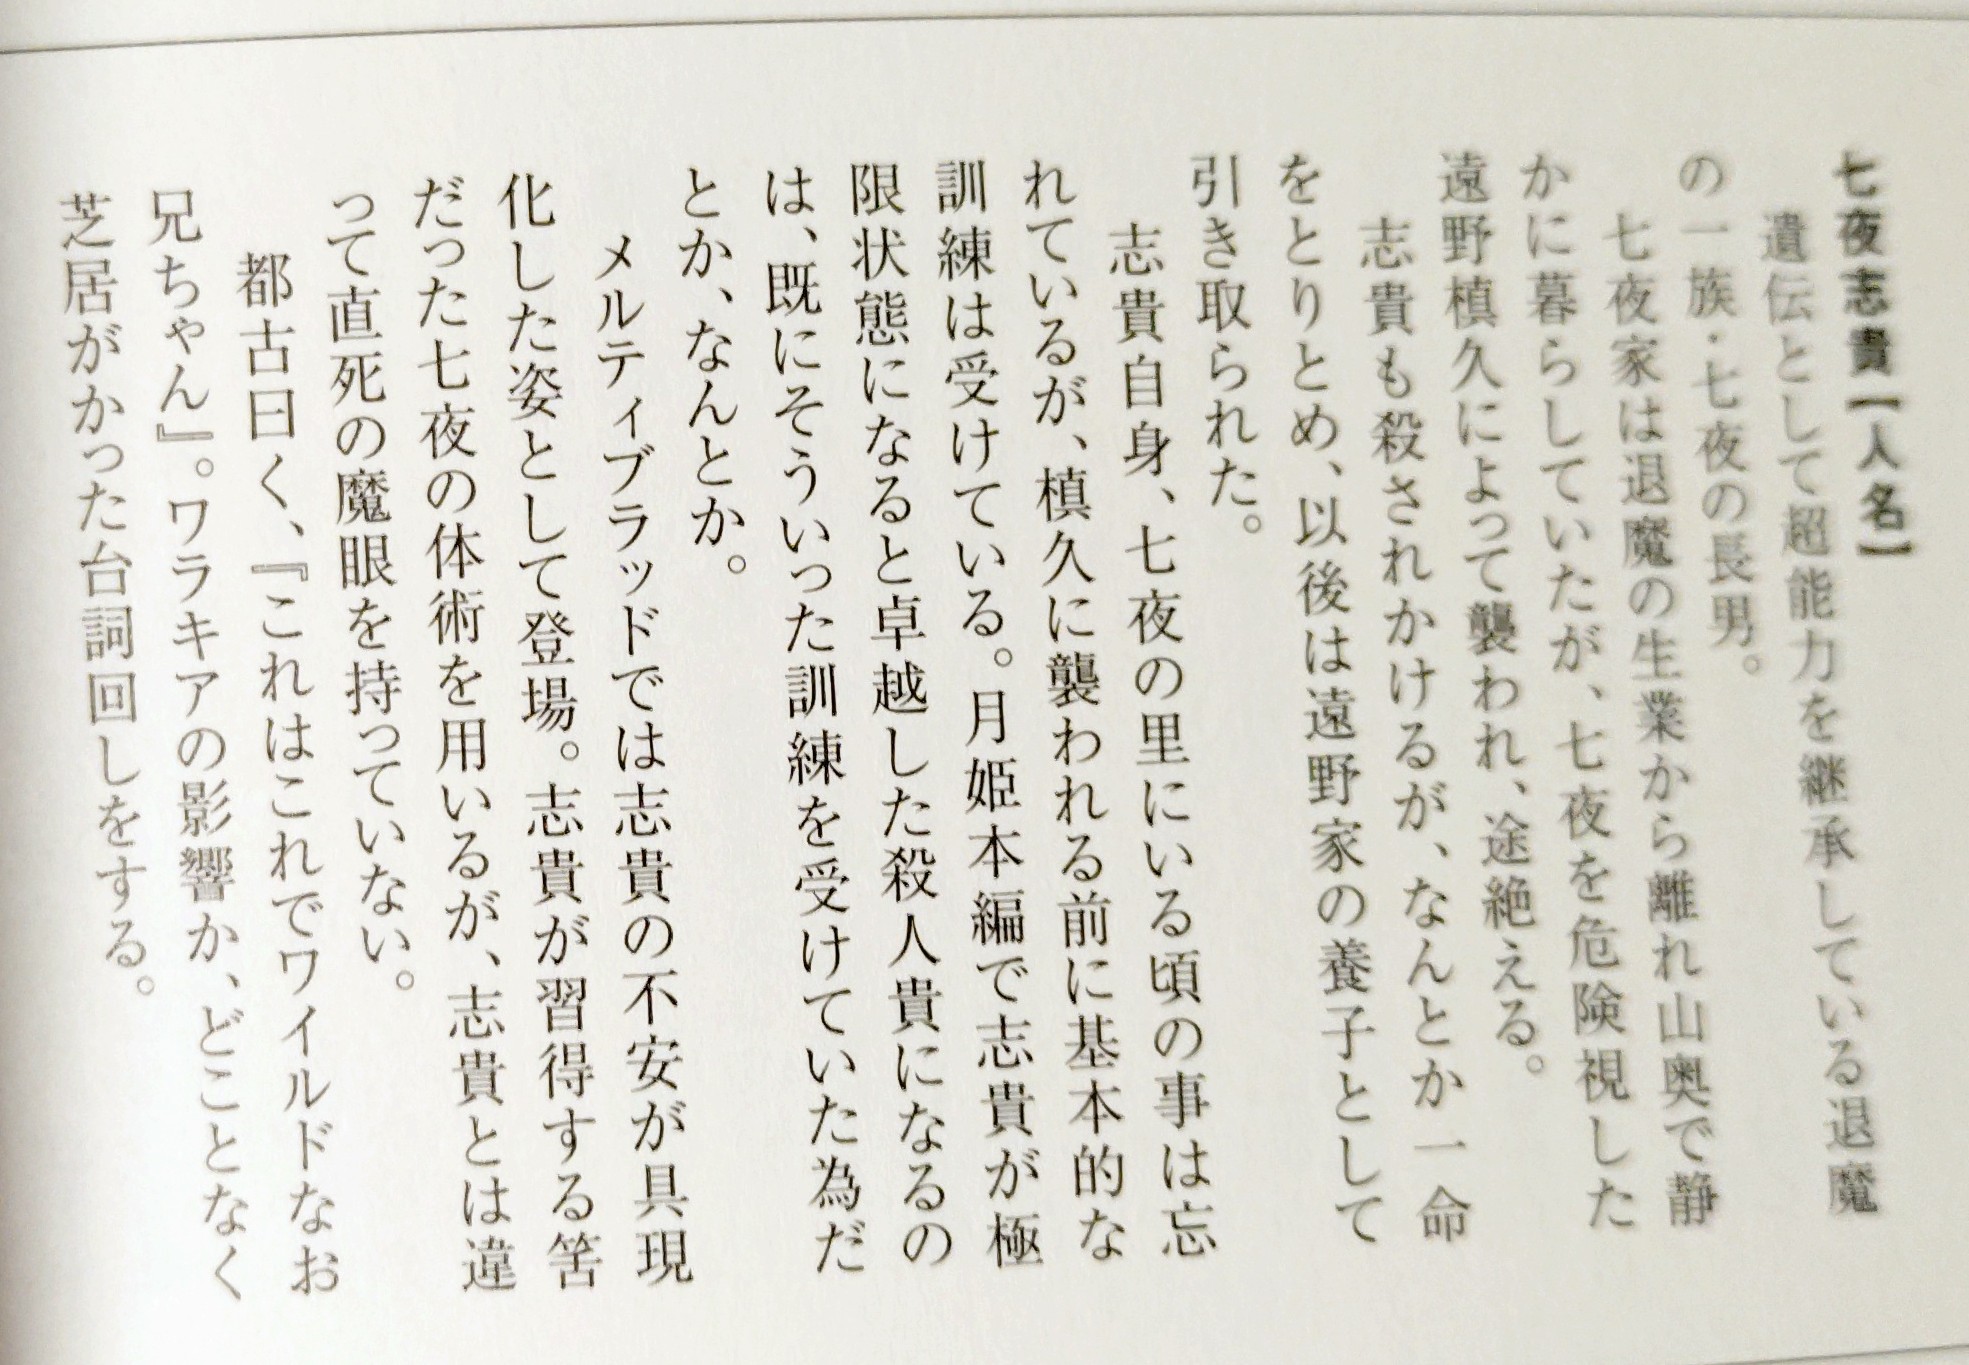 七夜志貴【人名】
遺伝として超能力を継承している退魔
の一族・七夜の長男。
七夜家は退魔の生業から離れ山奥で静
かに暮らしていたが、七夜を危険視した
遠野槙久によって襲われ、途絶える。
志貴も殺されかけるが、なんとか一命
をとりとめ、以後は遠野家の養子として
引き取られた。
志貴自身、七夜の里にいる頃の事は忘
れているが、槙久に襲われる前に基本的な
訓練は受けている。月姫本編で志貴が極
限状態になると卓越した殺人貴になるの
は、既にそういった訓練を受けていた為だ
とか、なんとか。
メルティブラッドでは志貴の不安が具現
化した姿として登場。志貴が習得する筈
だった七夜の体術を用いるが、志貴とは違
って直死の魔眼を持っていない。
都古曰く、『これはこれでワイルドなお
兄ちゃん』。ワラキアの影響か、どことなく
芝居がかった台詞回しをする。